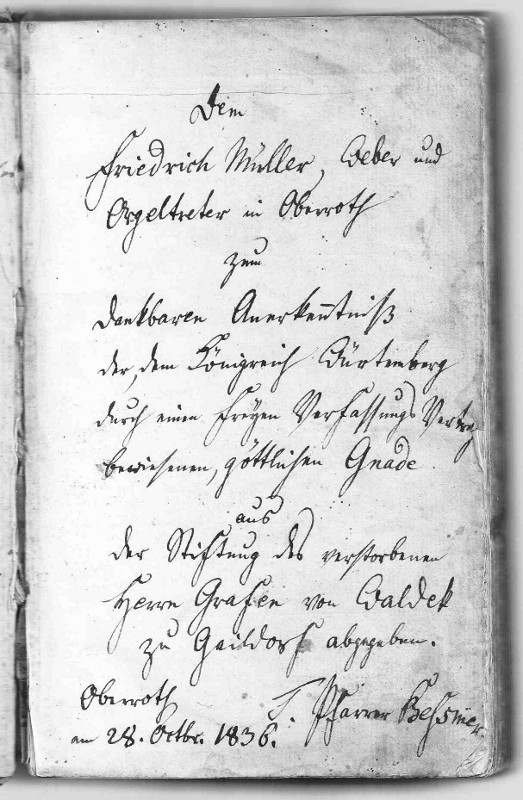 Dem
Friedrich Müller, Weber und
Orgeltreter in Oberroth
zum
dankbaren Anerkenntniß
der, dem Königreich Würtemberg
durch einen freyen Verfassungs Vertrag
bewiesenen, göttlichen Gnade
aus
der Stiftung des verstorbenen
Herrn Grafen von Waldek
zu Gaildorf abgegeben.
Oberroth T. Pfarrer
am 28. Octbr. 1836.